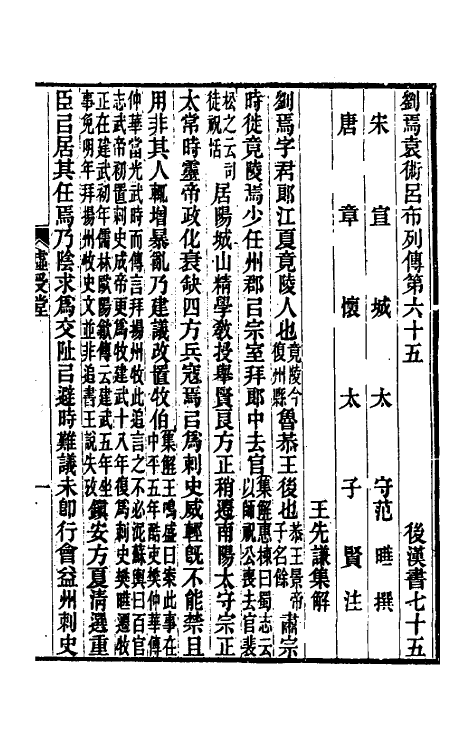 劉焉袁術呂布列傳第六十五　後漢書七十五
宋宣城太守范曄撰
唐章懷太子賢注
王先謙集解
劉焉字君郎江夏竟陵人也竟陵今復州縣魯恭王後也恭王景帝子名餘肅宗
時徙竟陵焉少任州郡㠯宗室拜郎中去官集解惠棟曰蜀志云以師祝公喪去官裴
松之云司徒祝恬居陽城山精學教授舉賢良方正稍遷南陽太守宗正
太常時靈帝政化衰缺四方兵寇焉㠯爲刺史威輕旣不能禁且
用非其人輒增暴亂乃建議改置牧伯集解王鳴盛曰案此事在中平五年酷吏樊仲華傳
仲華當光武時而傳言拜揚州牧此追言之不必泥蘇輿曰百官志武帝初置刺史成帝更爲牧建武十八年復爲刺史樊曄遷牧
正在建武初年儒林歐陽歙傳云建武五年坐事免明年拜揚州牧史文並非追書王說失攷鎭安方夏淸選重
臣㠯居其任焉乃陰求爲交阯㠯避時難議未卽行會益州刺史
虛受堂
一